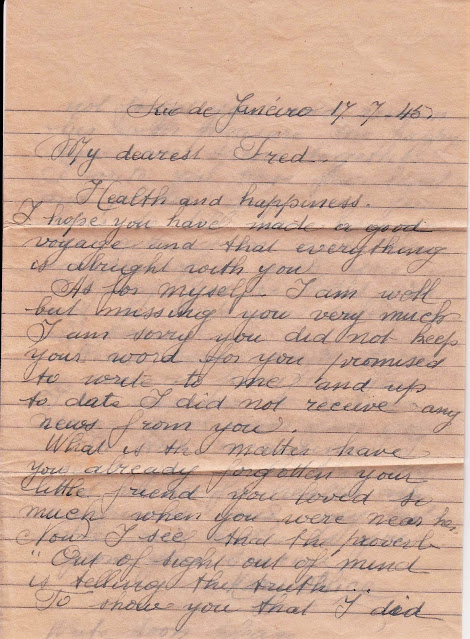 Rio de Janéiro 17-7-45.
My dearest Fred.
Health and happiness.
I hope you have made a good
voyage and that everything
is alright with you
As for myself I am well
but missing you very much
I am sorry you did not keep
your word for you promised
to write to me and up
to date I did not receive any
news from you.
What is the matter have
you already forgotten your
little friend you loved so
much when you were near her.
Now I see that the proverb
"Out of sight out of mind
is telling the truth...
To show you that I did